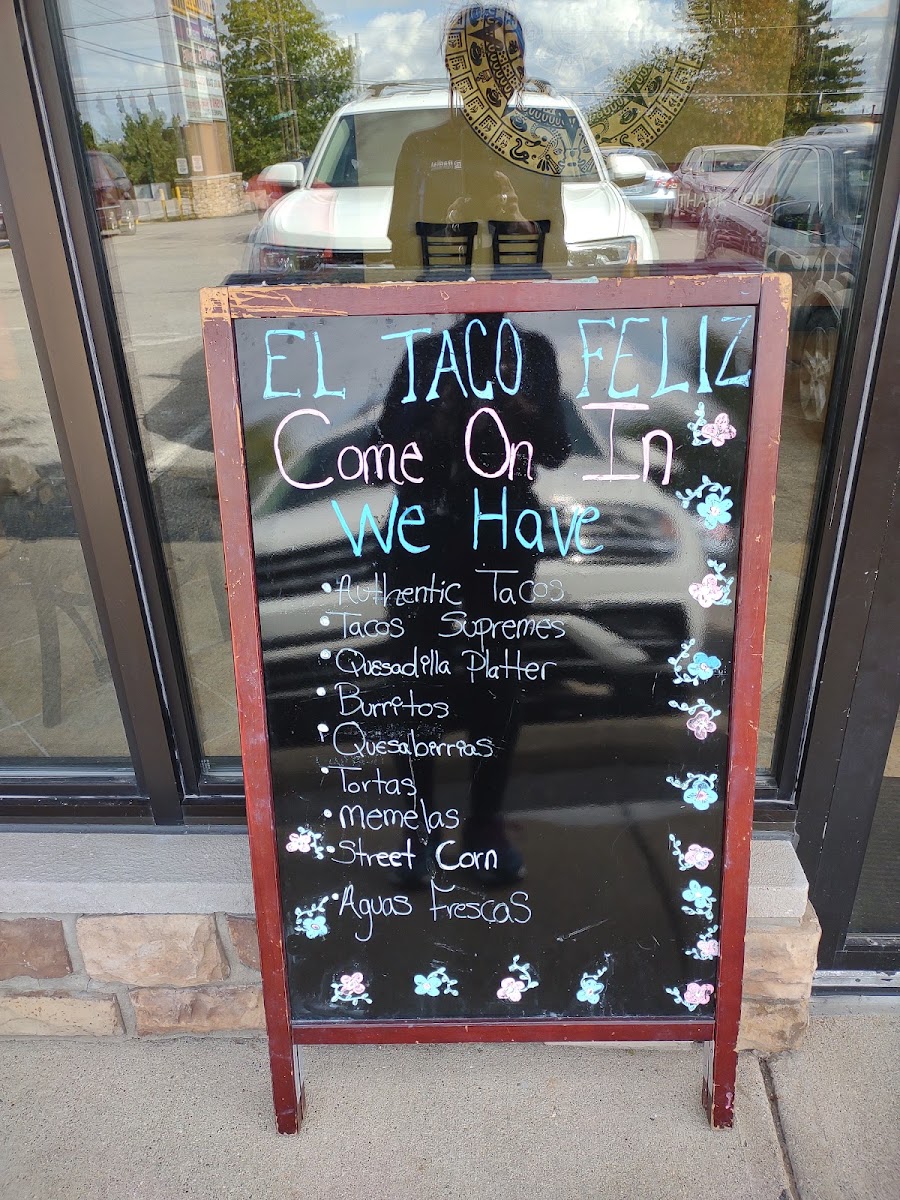 EL TACO FELIZ
Come On In
We Have
• Authentic Tacos
• Tacos Supremes
• Quesadilla Platter
• Burritos
• Quesabirrias
• Tortas
• Memelas
• Street Corn
• Aguas Frescas